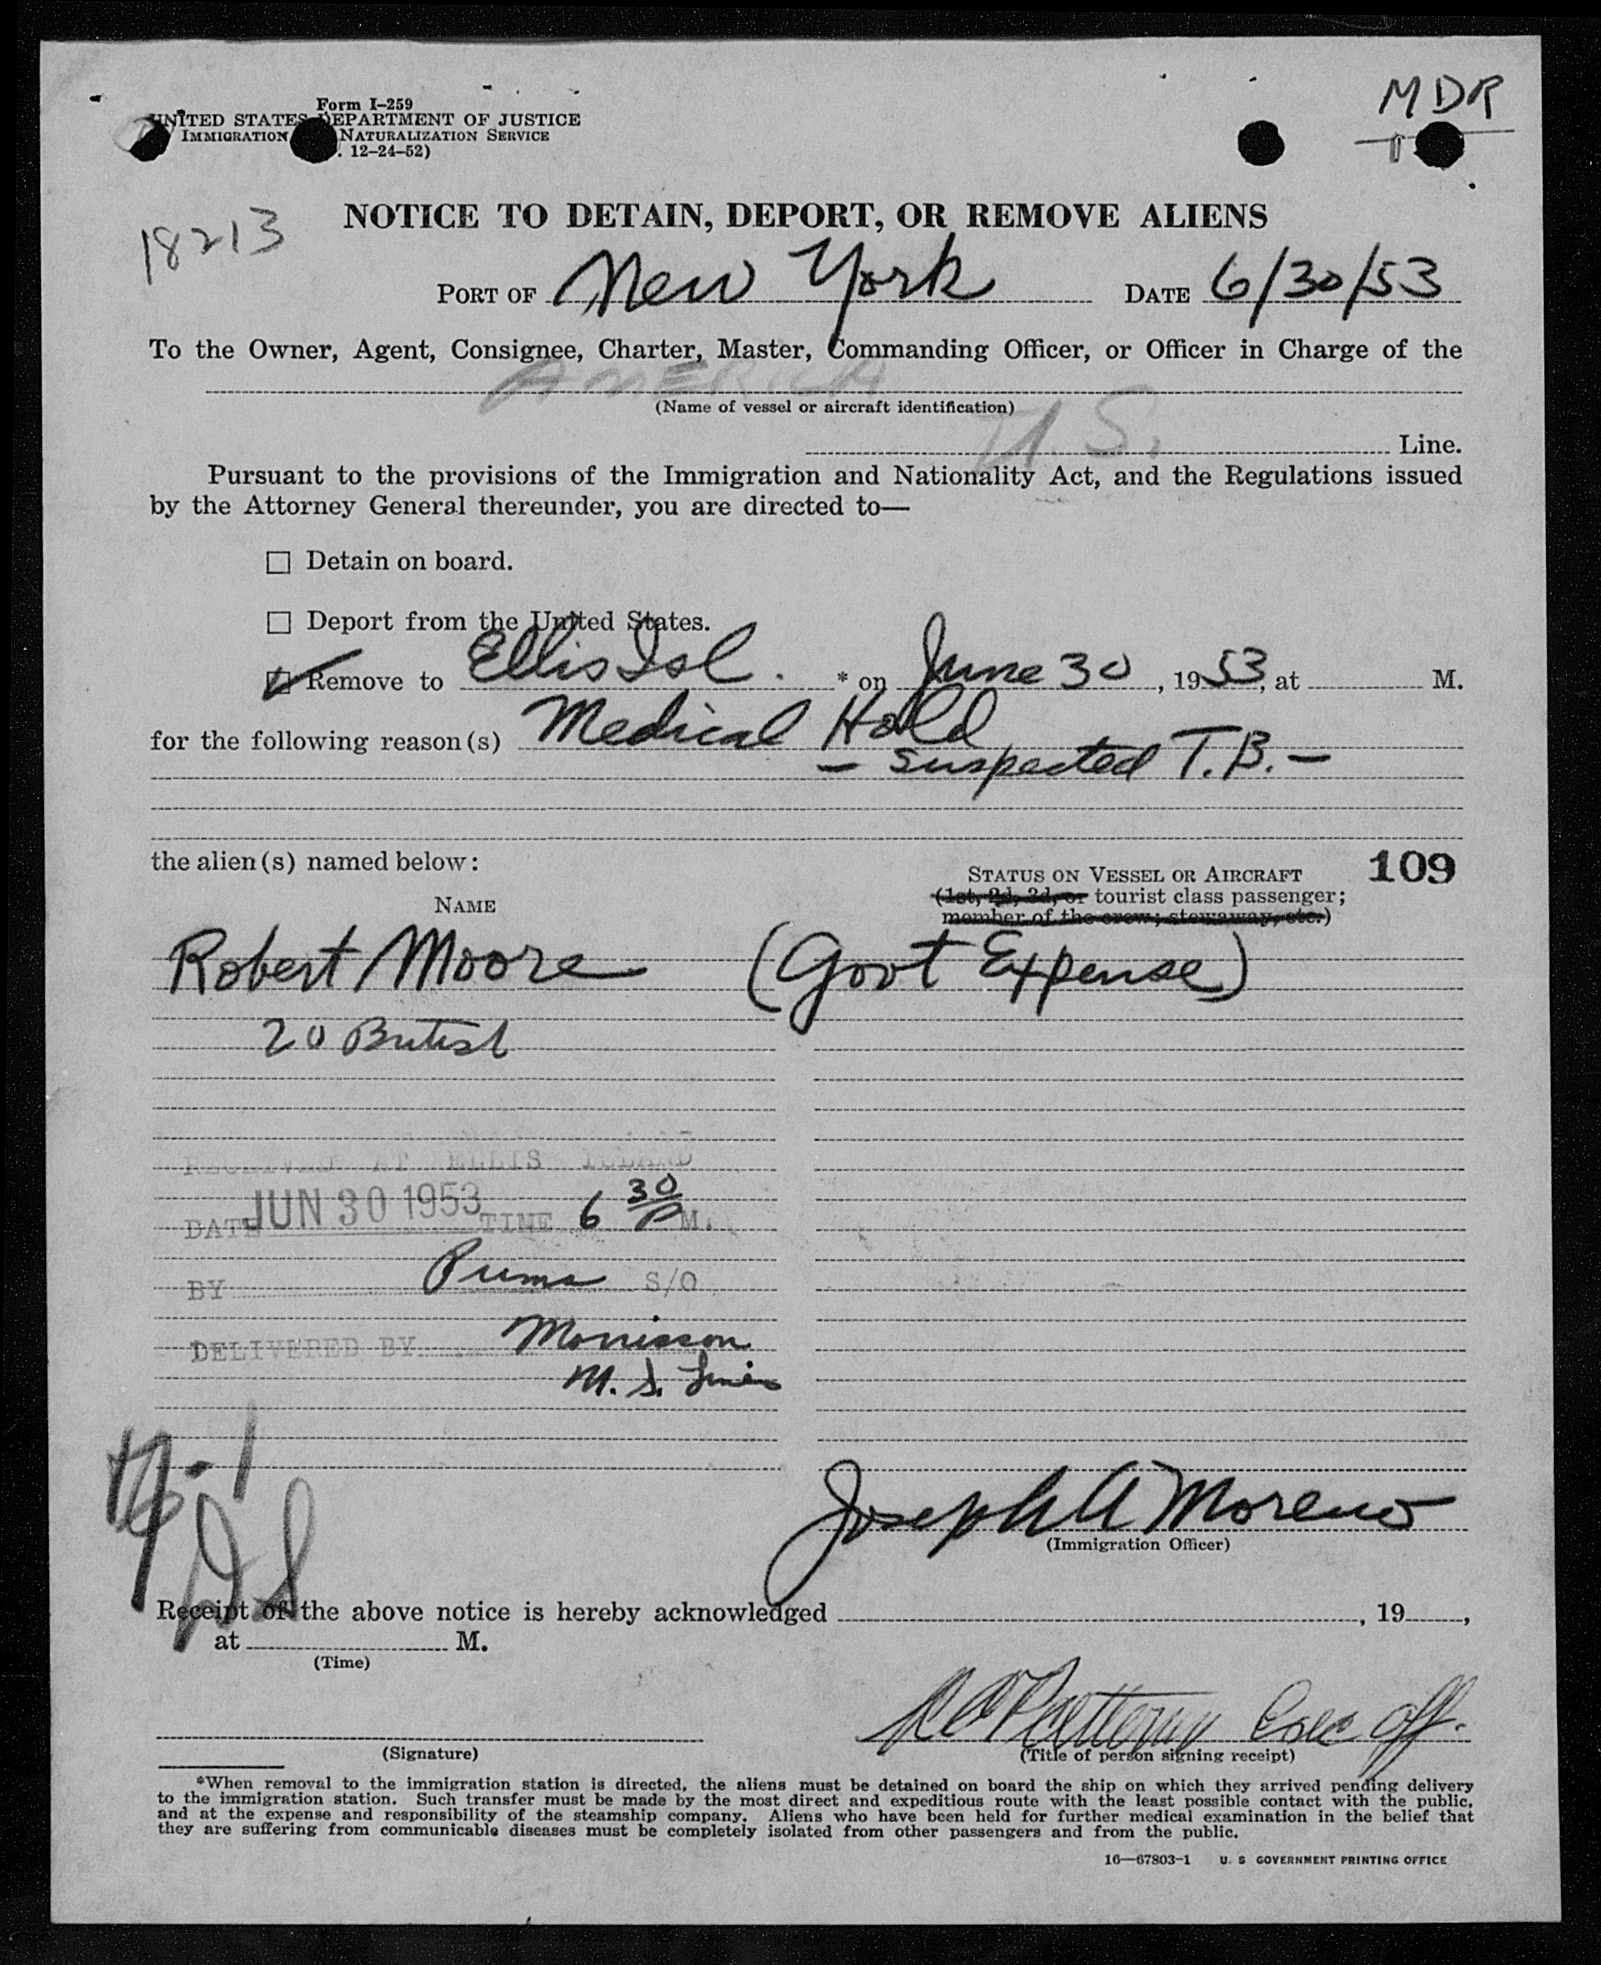 MDR
Form I-259
UNITED STATES DEPARTMENT OF JUSTICE
IMMIGRATION NATURALIZATION SERVICE
. 12-24-52)
18213
NOTICE TO DETAIN, DEPORT, OR REMOVE ALIENS
PORT OF New York DATE 6/30/53
To the Owner, Agent, Consignee, Charter, Master, Commanding Officer, or Officer in Charge of the
AMERICA
(Name of vessel or aircraft identification)
U.S. Line.
Pursuant to the provisions of the Immigration and Nationality Act, and the Regulations issued
by the Attorney General thereunder, you are directed to—
Detain on board.
Deport from the United States.
Remove to Ellis Isl. * on June 30, 1953, at M.
for the following reason(s) Medical Hold
- suspected T.B. -
the alien(s) named below:
109
STATUS ON VESSEL OR AIRCRAFT
(1st, 2d, 3d, or tourist class passenger;
member of the crew; stowaway, etc.)
NAME
Robert Moore (Govt Expense)
20 British
RECEIVED AT ELLIS ISLAND
DATE JUN 30 1953 TIME 6 30 P M.
BY Puma S/O
DELIVERED BY Morrisson
M. S. Lines
Joseph A Moreno
(Immigration Officer)
DS
Receipt of the above notice is hereby acknowledged , 19 ,
at M.
(Time)
Exec off.
(Signature)
(Title of person signing receipt)
*When removal to the immigration station is directed, the aliens must be detained on board the ship on which they arrived pending delivery
to the immigration station. Such transfer must be made by the most direct and expeditious route with the least possible contact with the public,
and at the expense and responsibility of the steamship company. Aliens who have been held for further medical examination in the belief that
they are suffering from communicable diseases must be completely isolated from other passengers and from the public.
16—67803-1 U. S GOVERNMENT PRINTING OFFICE